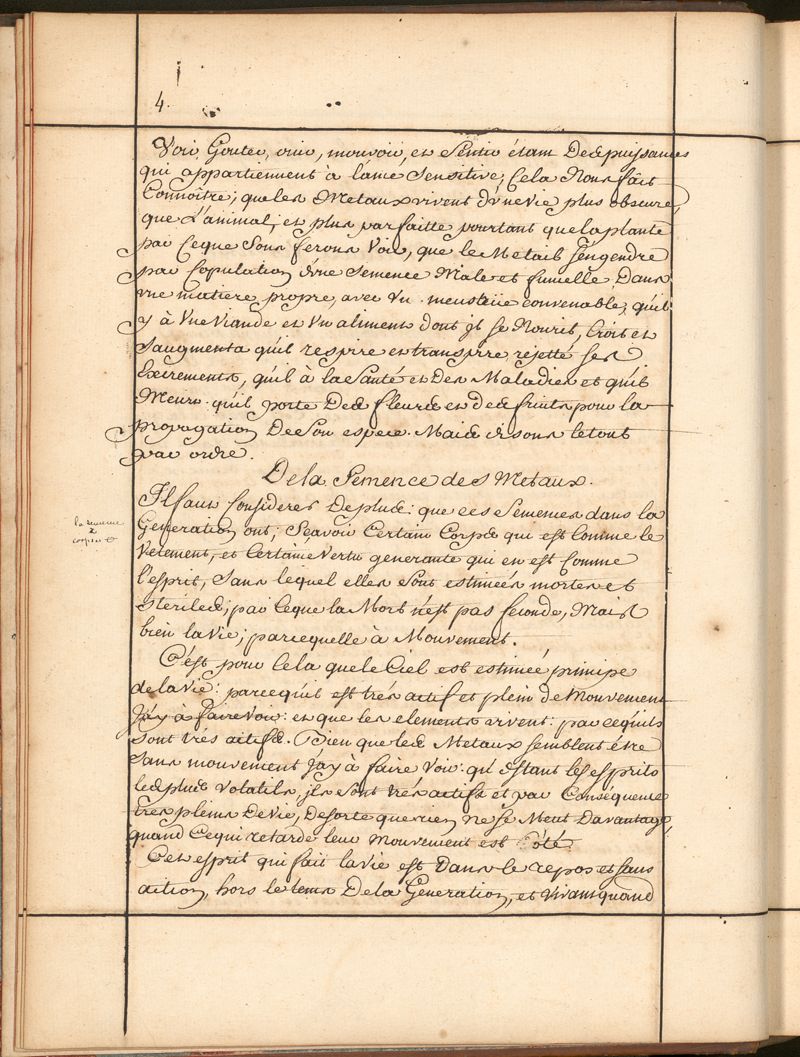 4.
Voir Gouter, ouir, mouvoir, et Sentir étant Des puissances
qui appartiennent à l'ame Sensitive; Cela Nous fait
Connoître; que les Metaux vivent d'une vie plus obscure,
que L'animal; et plus parfaitte pourtant que la plante
par Ceque Nous ferons Voir, que le Metail s'engendre
par Copulation d'une Semence Male et fumelle Dans
une matiere propre, avec Un menstrüe convenable, quil
y à Une Viande et Un aliment dont jl se Nourit, Croit et
saugmenta quil respire et transpire rejette ses
Excrements, quil à la Santé et Des Maladies et quil
Meurs. quil porte Des fleurs et des fruits pour la
propagation De Son espece. Mais disons le tout
par ordre.
De la Semence des Metaux.
Il faut Considerer De plus: que ces Semences dans la
Generation ont; Scavoir Certain Corps qui est Comme le
Vetement, et Certaine Vertu generante qui en est Comme
l'esprit, Sans lequel elles Sont estimées mortes et
Steriles; par Ceque la Mort n'est pas feconde, Mais
bien la Vie; parcequelle à Mouvement.
C'est pour Cela que le Ciel est estimée principe
de la Vie: parcequil est trés actif et plein de Mouvement
J'ay à faire Voir: et que les elements vivent: parcequils
Sont trés actifs. Bien que les Metaux semblent étre
Sans mouvement J'ay à faire Voir: qu'estant les esprits
les plus Volatils, jls Sont trés actifs et par Conséquence
tres pleins De Vie, Desorte querien ne se Meut Davantage,
quand Cequi retarde leur Mouvement est ôté
Cet esprit qui fait la Vie est Dans le repos et sans
action, hors le tems De la Generation, et Vivant quand
la semence
corps